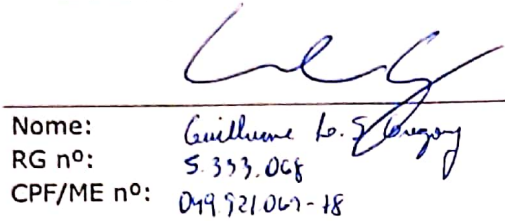 Nome: Guilherme L. S. Gregory
RG nº: 5.333.068
CPF/ME nº: 049.921.069-78